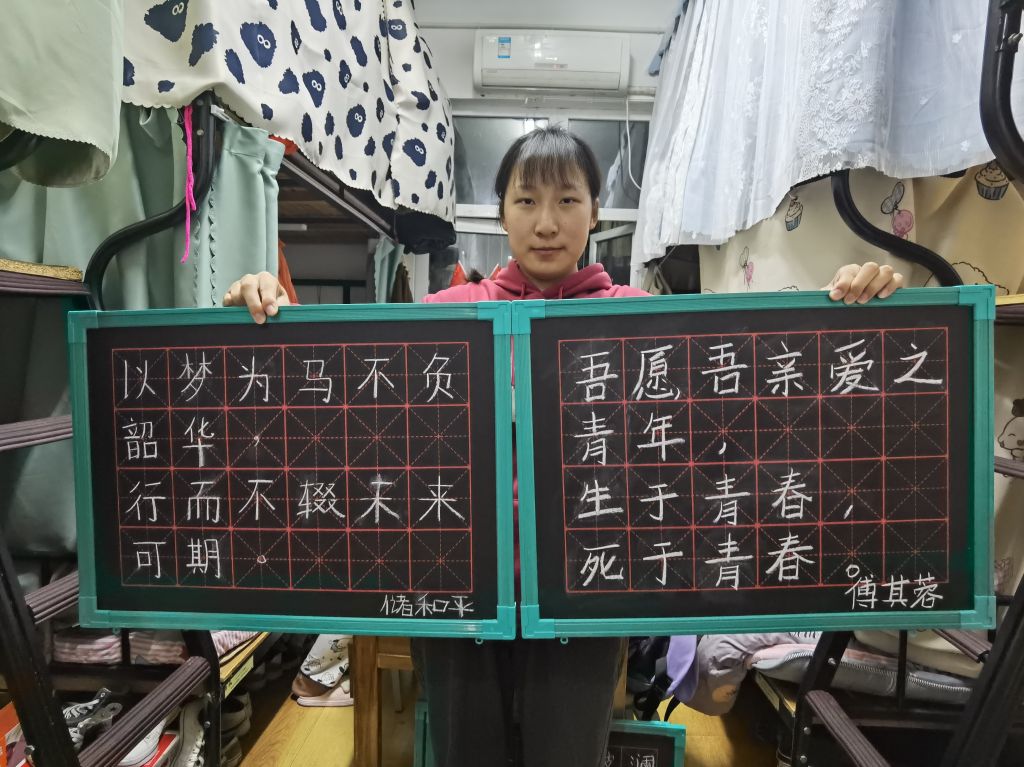 以梦为马不负
韶华，
行而不辍未来
可期。
储和平
吾愿吾亲爱之
青年，
生于青春，
死于青春。
傅其蓉
澜